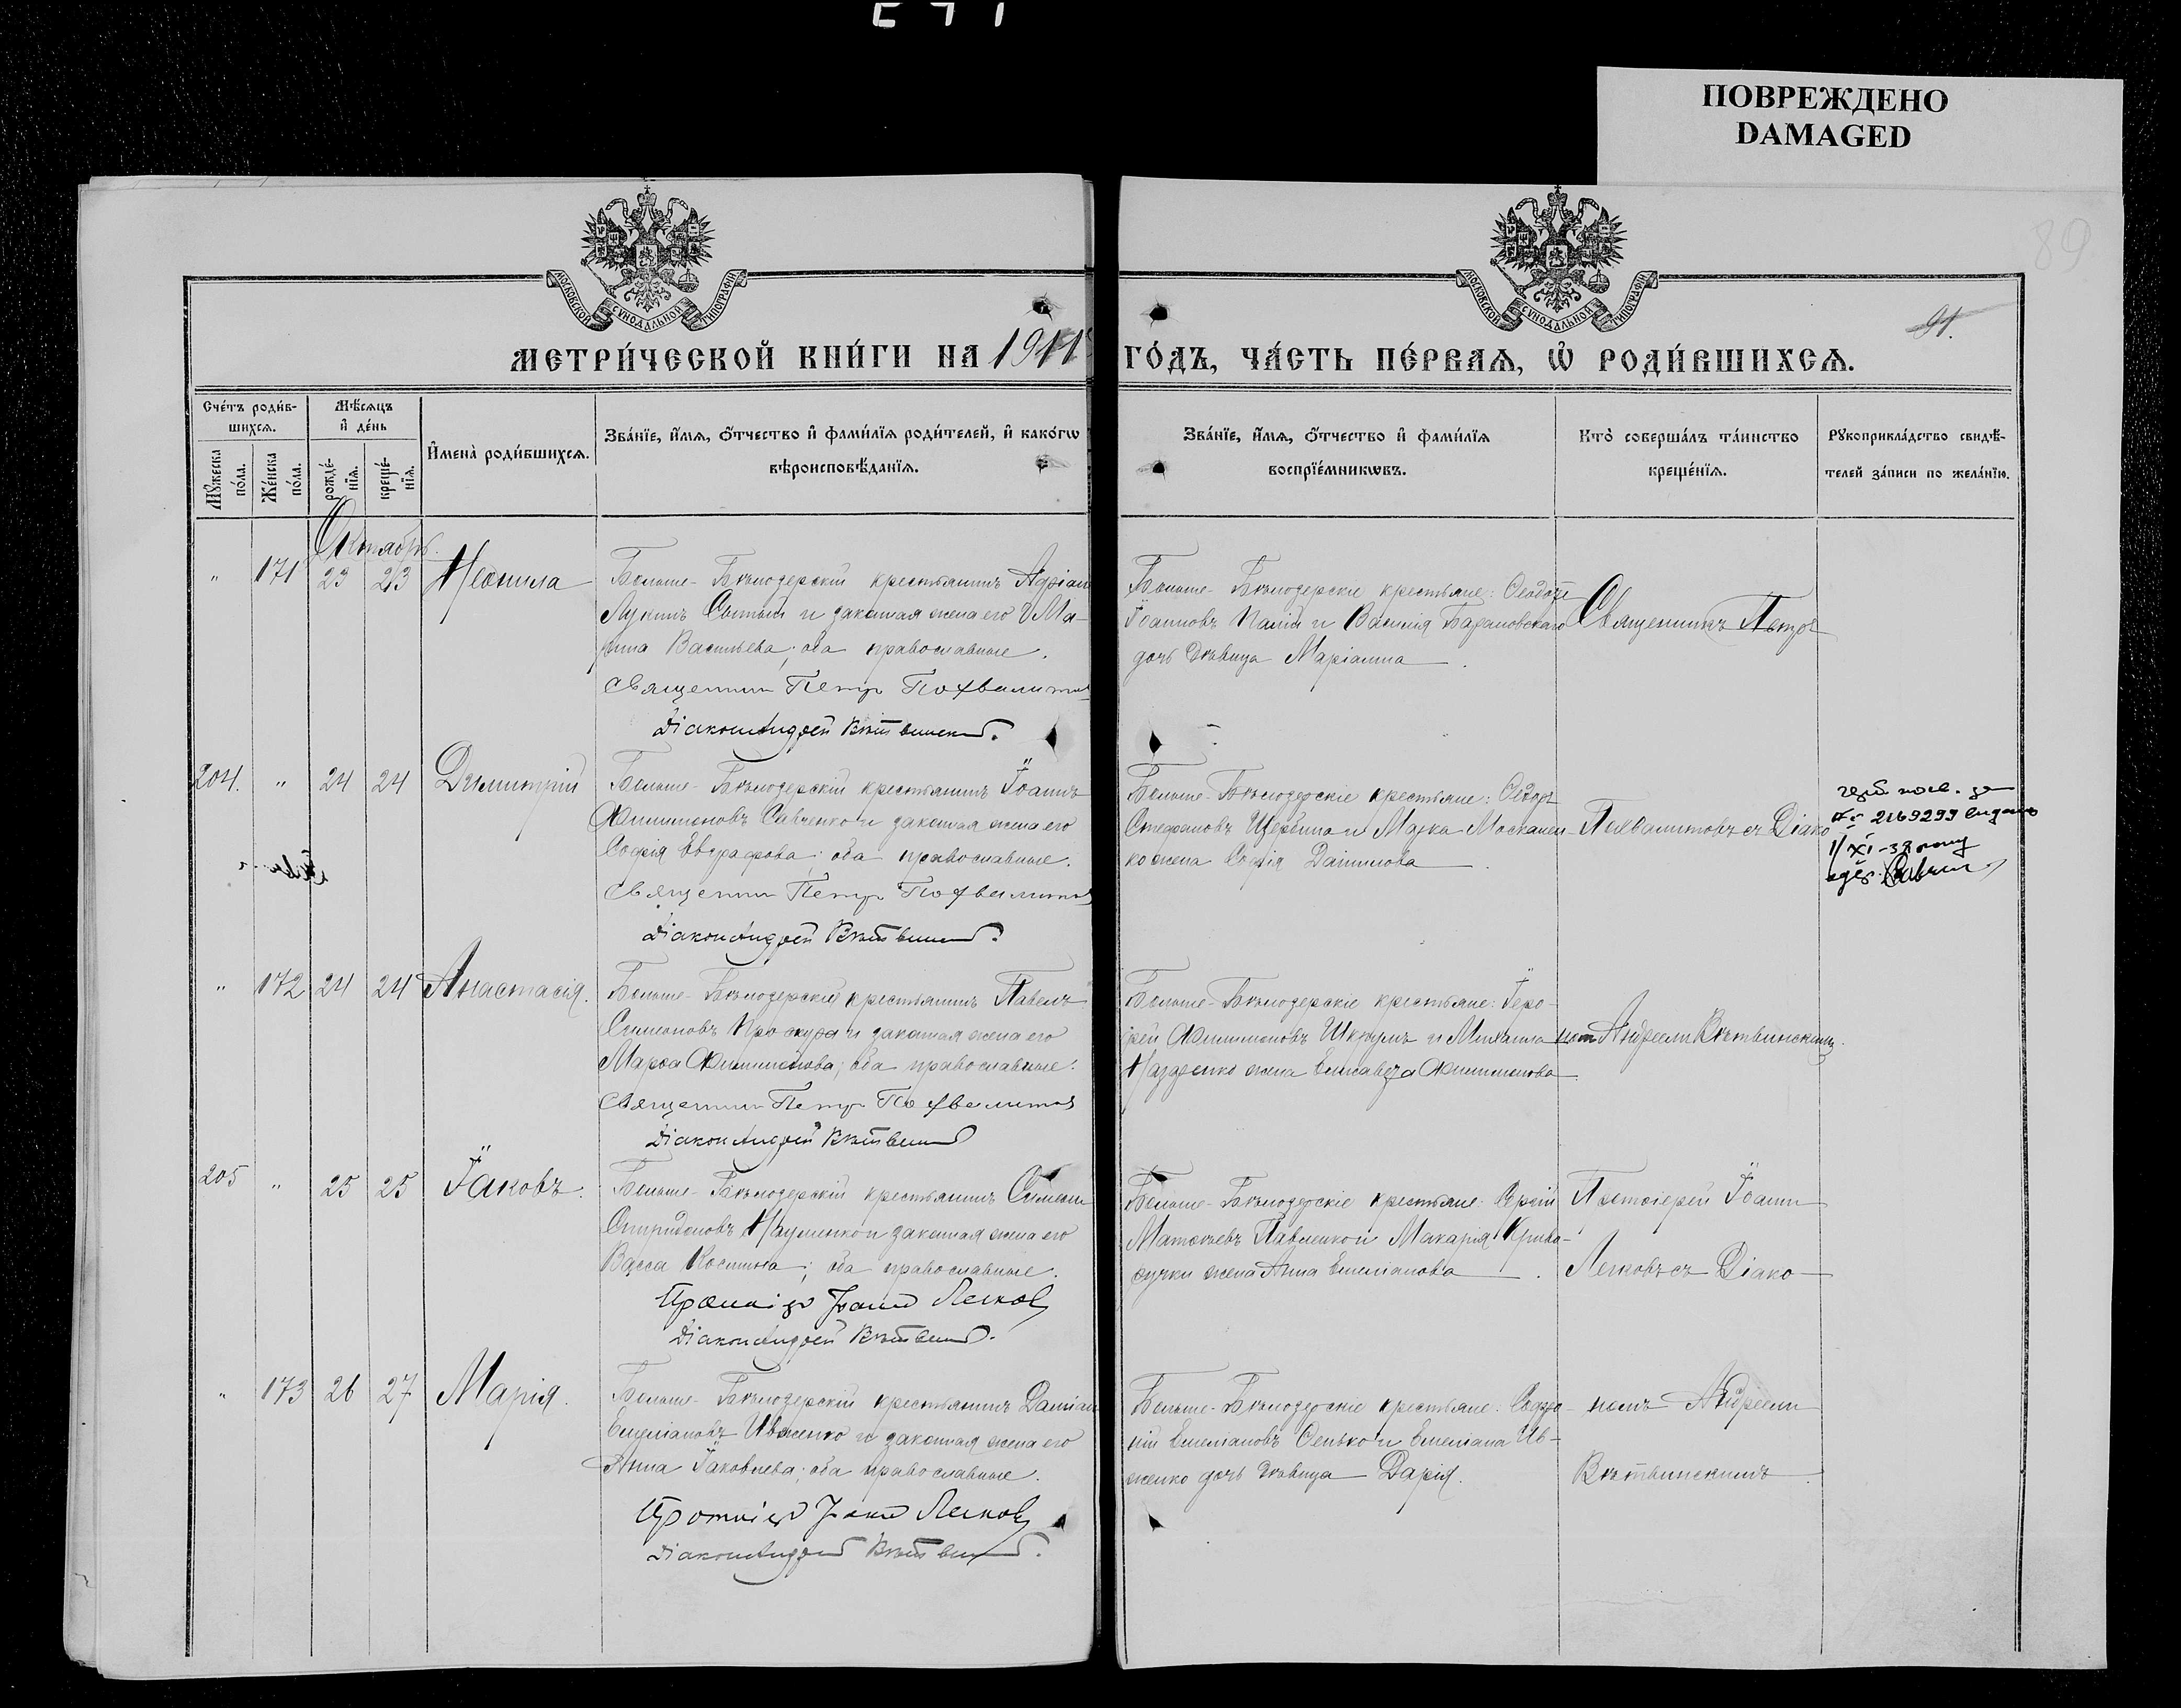 ПОВРЕЖДЕНО
DAMAGED
89
91.
МОСКОВСКОЙ СѴНОДАЛЬНОЙ ТИПОГРАФІИ
МОСКОВСКОЙ СѴНОДАЛЬНОЙ ТИПОГРАФІИ
МЕТРИ́ЧЕСКОЙ КНИ́ГИ НА 1911
ГО́ДЪ, ЧА́СТЬ ПЕ́РВАѦ, Ѽ РОДИ́ВШИХСѦ.
Сче́тъ роди́в-
шихсѧ.
Мѣ́сѧцъ
и҆ де́нь
Мꙋ́жеска
по́ла.
Же́нска
по́ла.
рожде́-
нїѧ.
креще́-
нїѧ.
И҆мена̀ роди́вшихсѧ.
Зва́нїе, и҆́мѧ, о҆́тчество и҆ фами́лїѧ роди́телей, и҆ како́гѡ
вѣроисповѣ́данїѧ.
Зва́нїе, и҆́мѧ, о҆́тчество и҆ фами́лїѧ
воспрїе́мникѡвъ.
Кто̀ соверша́лъ та́инство
креще́нїѧ.
Рꙋкоприкла́дство свидѣ́-
телей за́писи по жела́нїю.
Октябрь.
" 171 23 23 Неонила
Больше-Бѣлозерскій крестьянинъ Адріанъ
Лукинъ Сытый и законная жена его Ма-
Васильева; оба православные.
Священникъ Петръ Похвалитовъ
Діаконъ Андрей Вѣтвинскій.
Больше-Бѣлозерскіе крестьяне: Ѳеодоръ
Іоанновъ Палій и Василія Барановскаго
дочь дѣвица Маріанна.
Священникъ Петръ
204. " 24 24 Димитрій
Больше-Бѣлозерскій крестьянинъ Іоаннъ
Филимоновъ Савченко и законная жена его
Софія Евграфова; оба православные.
Священникъ Петръ Похвалитовъ
Діаконъ Андрей Вѣтвинскій.
Больше-Бѣлозерскіе крестьяне: Ѳеодоръ
Стефановъ Щербина и Марка Москален-
ко жена Софія Даніилова.
Похвалитовъ съ Діако
№ 2169299
" 172 24 24 Анастасія.
Больше-Бѣлозерскій крестьянинъ Павелъ
Симеоновъ Проскура и законная жена его
Марѳа Филимонова; оба православные.
Священникъ Петръ Похвалитовъ
Діаконъ Андрей Вѣтвинскій
Больше-Бѣлозерскіе крестьяне: Геро-
Филимоновъ и Михаила
жена Елисавета Филимонова
номъ Андреемъ Вѣтвинскимъ.
205 " 25 25 Іаковъ.
Больше-Бѣлозерскій крестьянинъ Симеонъ
Спиридоновъ Науменко и законная жена его
Васса Космина; оба православные.
Протоіерей Іоаннъ Лесковъ
Діаконъ Андрей Вѣтвинскій.
Больше-Бѣлозерскіе крестьяне:
Матѳеевъ Павленко и Макарія Криво-
ручки жена Анна Емеліанова.
Протоіерей Іоаннъ
Лесковъ съ Діако-
" 173 26 27 Марія.
Больше-Бѣлозерскій крестьянинъ Даміанъ
Емеліановъ Ивженко и законная жена его
Анна Іаковлева; оба православные.
Протоіерей Іоаннъ Лесковъ
Діаконъ Андрей Вѣтвинскій.
Больше-Бѣлозерскіе крестьяне: Софро-
ній Емеліановъ Сенько и Емеліана Ив-
женко дочь дѣвица Дарія.
номъ Андреемъ
Вѣтвинскимъ.